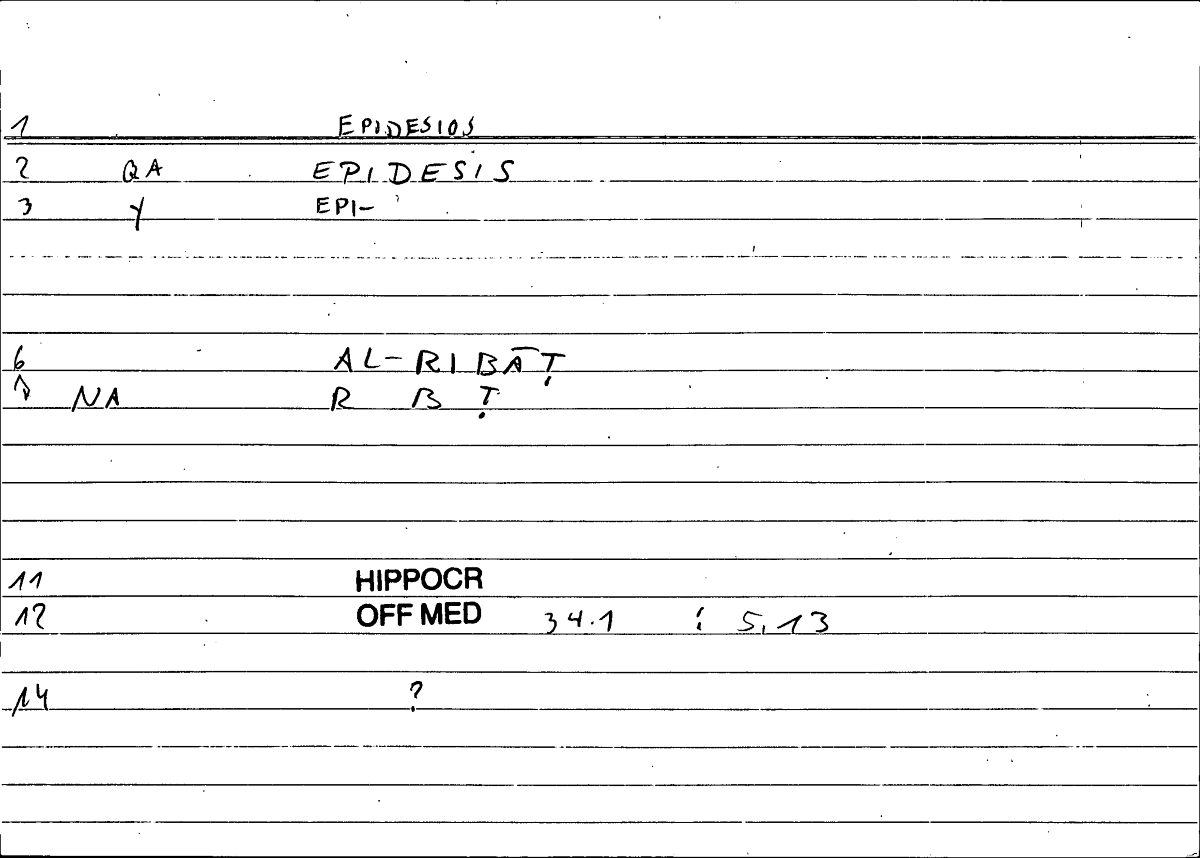 1 EPIDESIOS
2 QA EPIDESIS
3 Y EPI-
6 AL-RIBĀṬ
NA R B Ṭ
11 HIPPOCR
12 OFF MED 34.1 : 5,13
14 ?